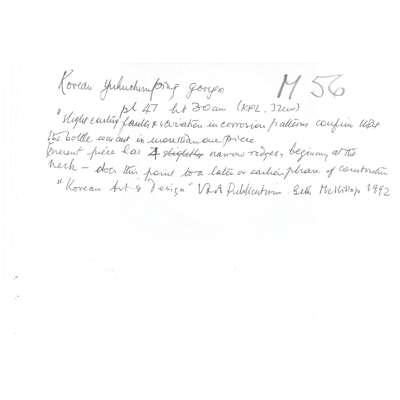 Korean yuhuchunping goryo M 56
pl 47 ht 30cm (KPL. 32cm)
"slight casting faults & variation in corrosion patterns confirm that
the bottle was cast in more than one piece
present piece has 4 slightly narrow ridges, beginning at the
neck – does this point to a later or earlier phase of construction
"Korean Art & Design" V&A Publication Beth McKillop 1992